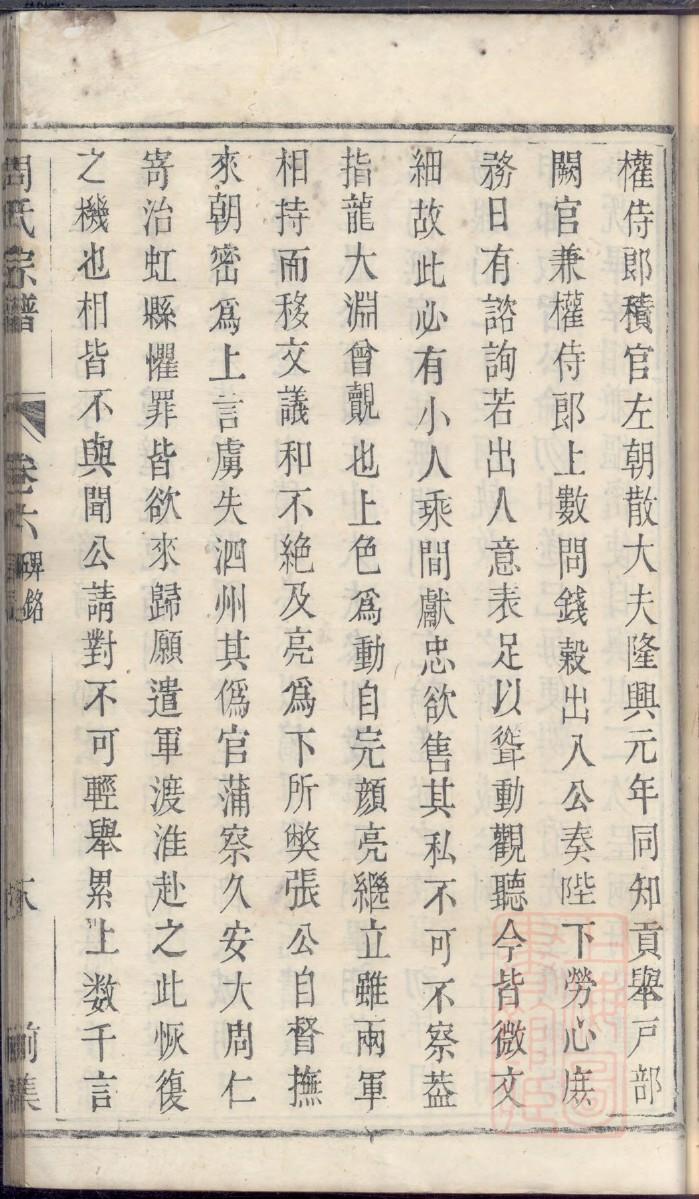 權侍郎積官左朝散大夫隆興元年同知貢舉戸部
闕官兼權侍郎上數問錢穀出入公奏陛下勞心庶
務日有諮詢若出人意表足以聳動觀聽今皆微文
細故此必有小人乘間獻忠欲售其私不可不察葢
指龍大淵曾覿也上色為動自完顔亮繼立雖兩軍
相持而移文議和不絶及亮為下所斃張公自督撫
來朝密爲上言虜失泗州其僞官蒲察久安大周仁
寄治虹縣懼罪皆欲來歸願遣軍渡淮赴之此恢復
之機也相皆不與聞公請對不可輕舉累上数千言
周氏宗譜
卷六
碑銘
前集